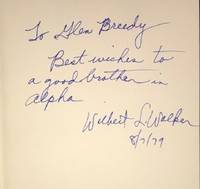 To Glen Breedy
Best wishes to
a good brother in
alpha
Wilbert L. Walker
8/7/79